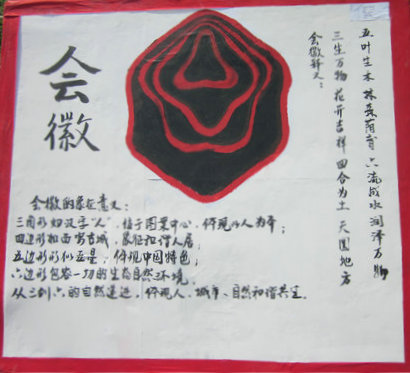 会徽
会徽释义：
三生万物 花开吉祥 四合为土 天圆地方
五叶生木 林森荫育 六流成水 润泽万物
会徽的象征意义：
三角形如汉字"人"，位于图案中心，体现以人为本；
四边形如西安古城，象征和谐人居；
五边形形似五星，体现中国特色；
六边形包容一切的生态自然环境。
从三到六的自然递进，体现人、城市、自然和谐共生。